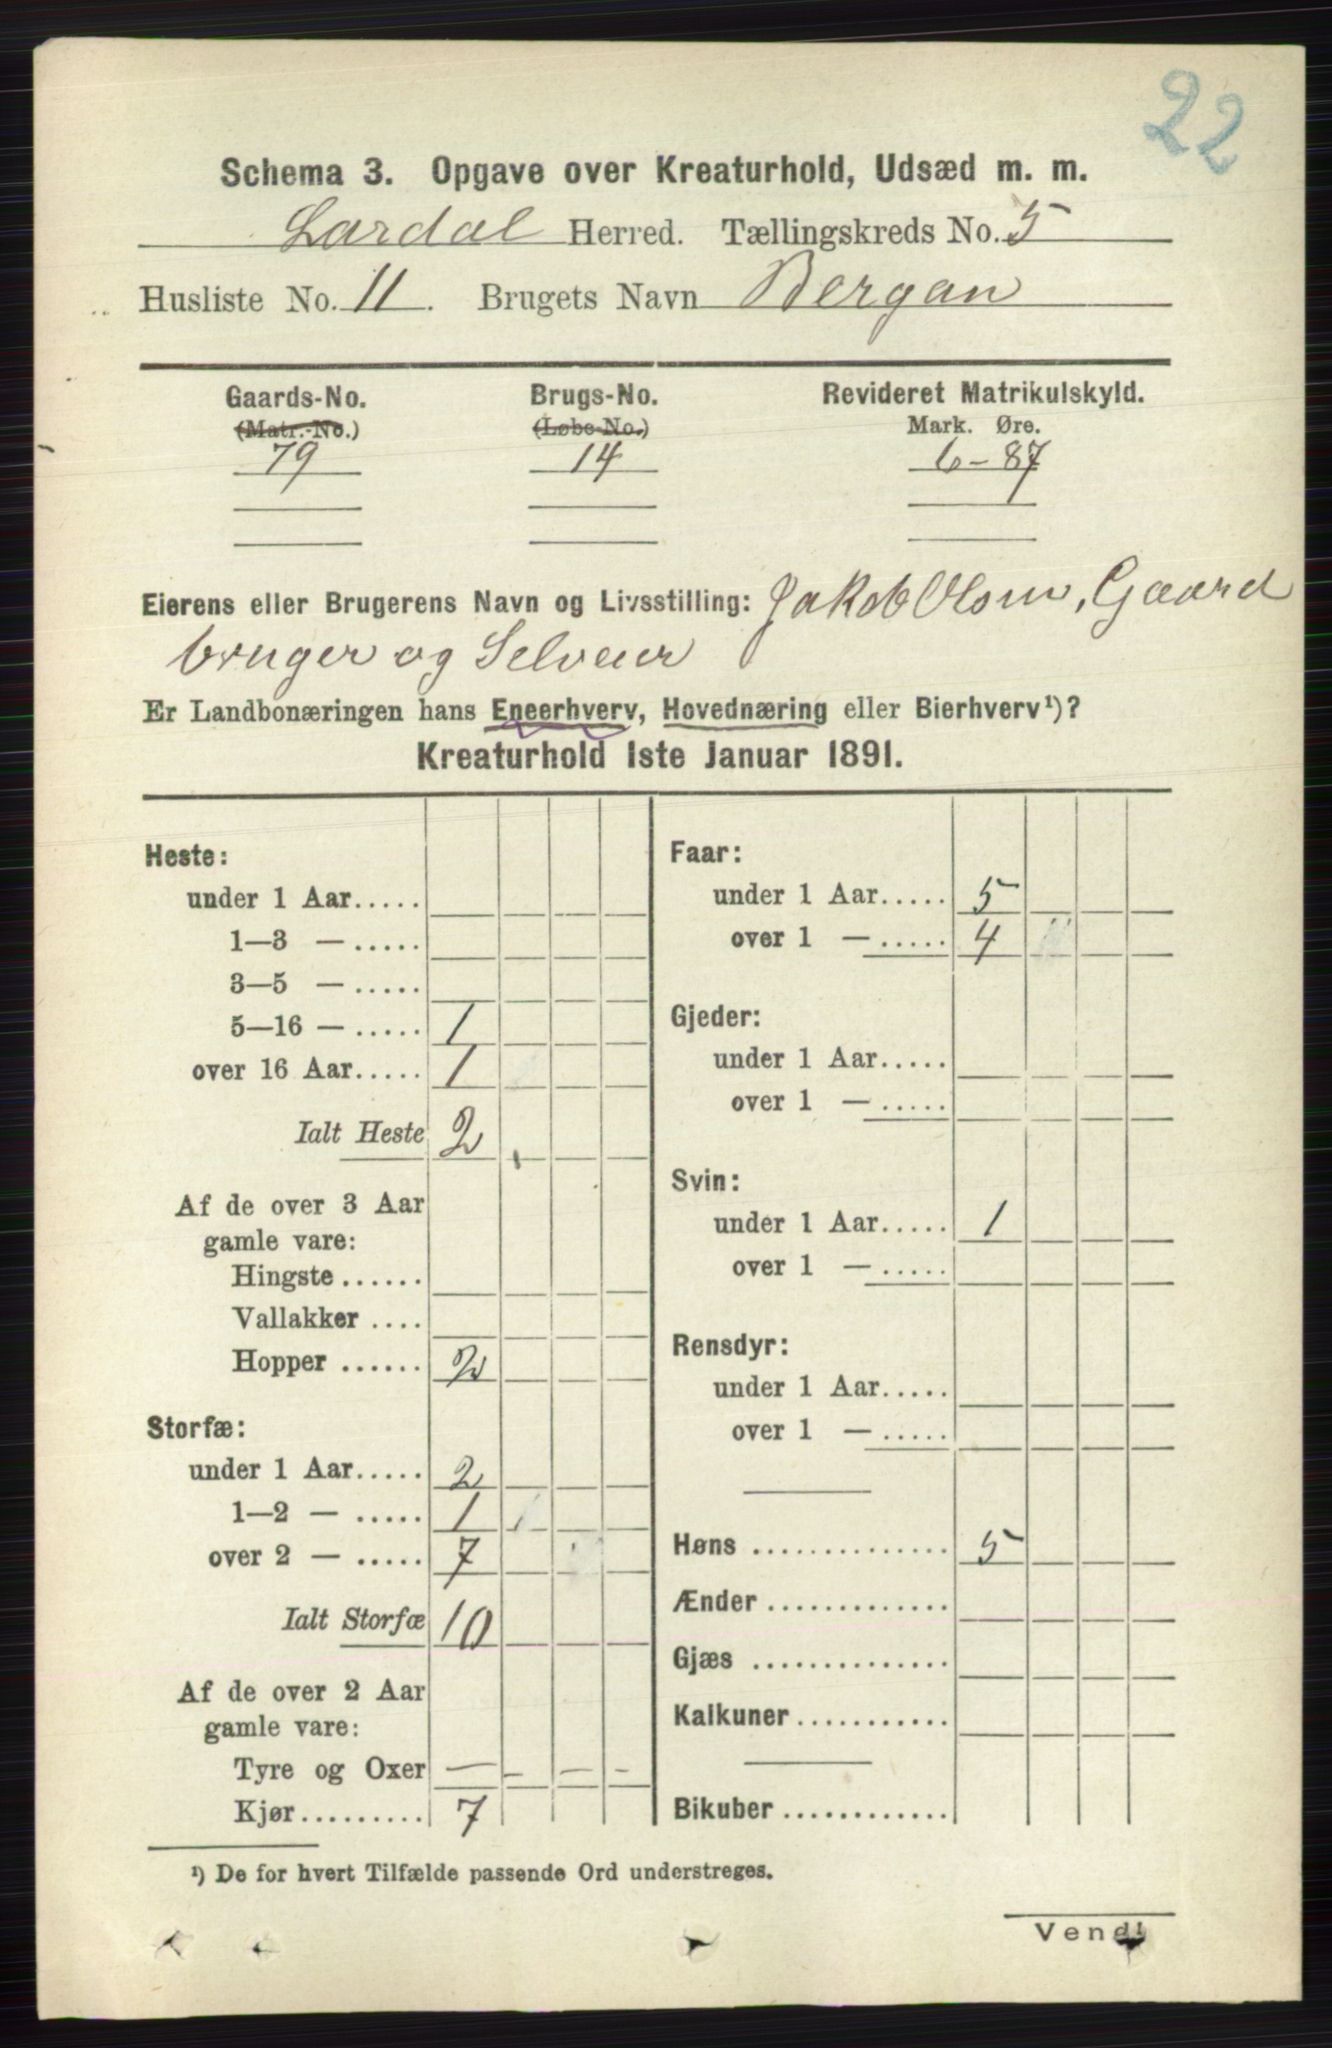 22
Schema 3. Opgave over Kreaturhold, Udsæd m. m.
Lardal Herred. Tællingskreds No. 5
Husliste No. 11. Brugets Navn Bergan
Gaards-No. Brugs-No. Revideret Matrikulskyld.
(Matr.-No.) (Løbe-No.) Mark. Øre.
79 14 6-87
Eierens eller Brugerens Navn og Livsstilling: Jakob Olsen, Gaard
bruger og Selveier
Er Landbonæringen hans Eneerhverv, Hovednæring eller Bierhverv¹)?
Kreaturhold 1ste Januar 1891.
Heste:
under 1 Aar.....
1—3 — .....
3—5 — .....
5—16 — ..... 1
over 16 Aar..... 1
Ialt Heste 2
Af de over 3 Aar
gamle vare:
Hingste ......
Vallakker ....
Hopper ...... 2
Storfæ:
under 1 Aar..... 2
1—2 — ..... 1
over 2 — ..... 7
Ialt Storfæ 10
Af de over 2 Aar
gamle vare:
Tyre og Oxer — — — —
Kjør......... 7
Faar:
under 1 Aar..... 5
over 1 — ..... 4
Gjeder:
under 1 Aar.....
over 1 — .....
Svin:
under 1 Aar..... 1
over 1 — .....
Rensdyr:
under 1 Aar.....
over 1 — .....
Høns .............. 5
Ænder .............
Gjæs ..............
Kalkuner...........
Bikuber ............
¹) De for hvert Tilfælde passende Ord understreges.
Vend!